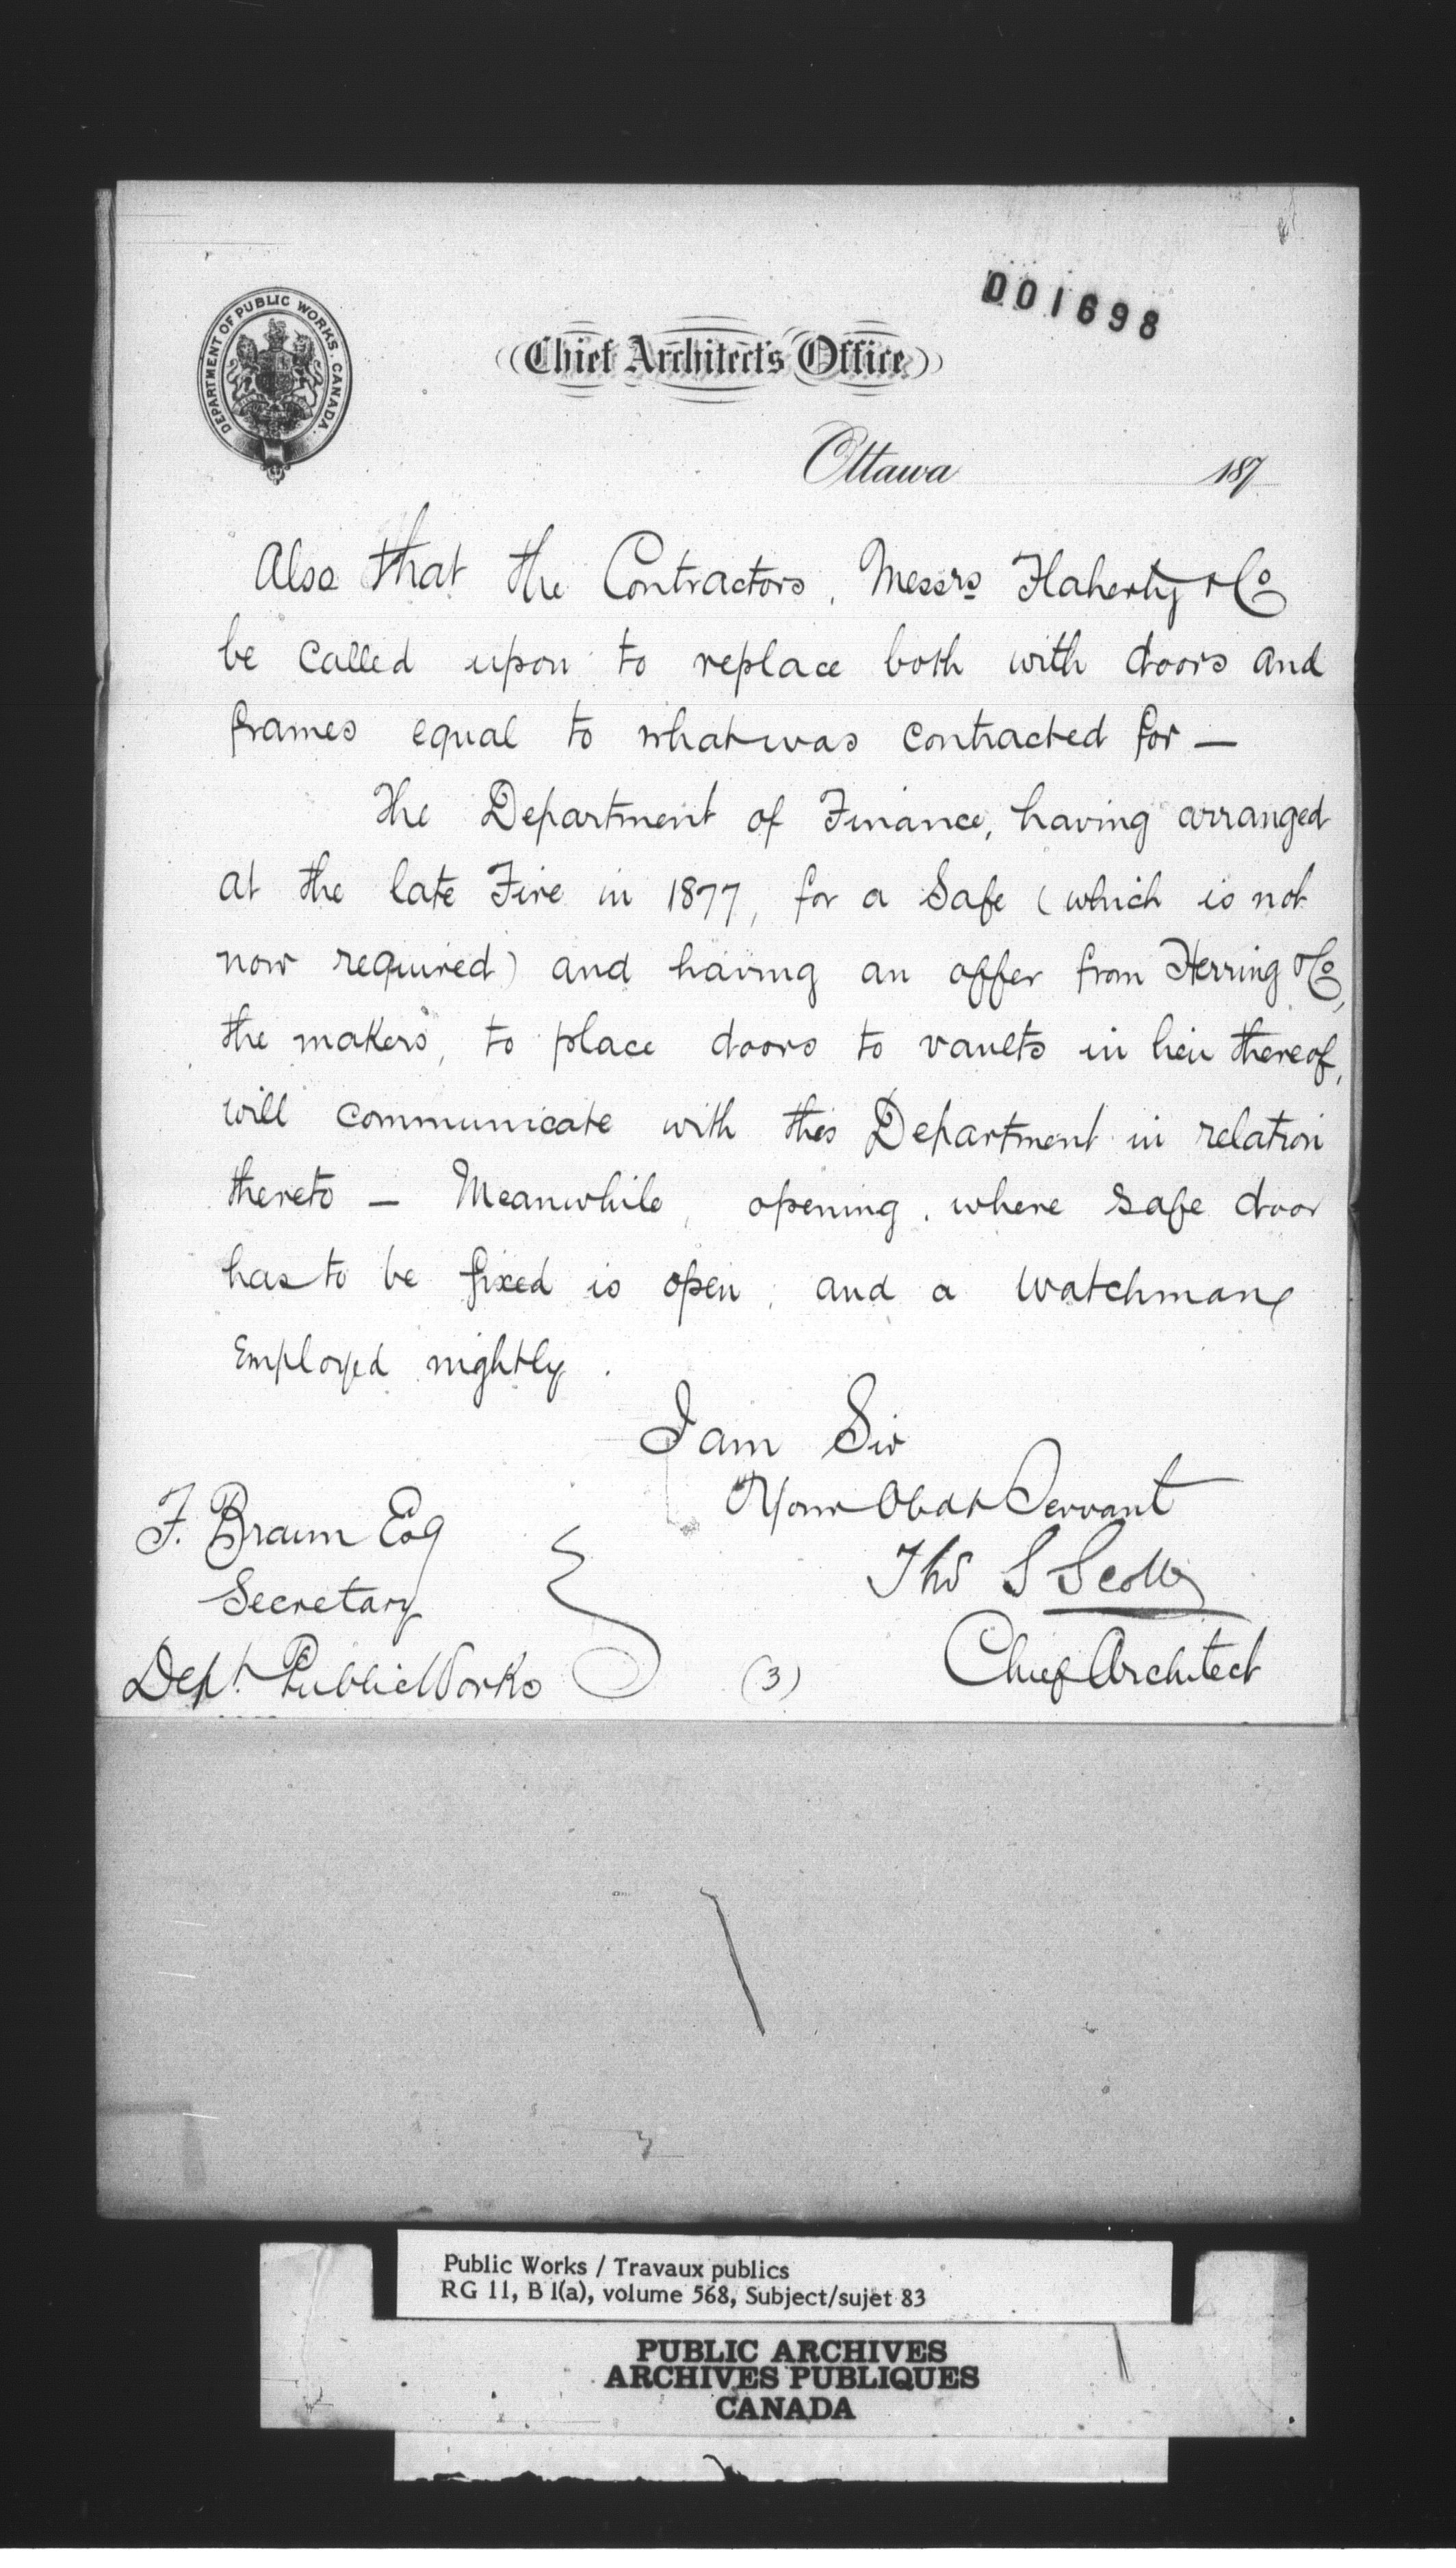 001698
DEPARTMENT OF PUBLIC WORKS. CANADA.
Chief Architect's Office
Ottawa 187
Also that the Contractors, Messrs Flaherty & Co
be called upon to replace both with doors and
frames equal to what was contracted for —
The Department of Finance, having arranged
at the late Fire in 1877, for a Safe (which is not
now required) and having an offer from Herring & Co,
the makers, to place doors to vaults in lieu thereof,
will communicate with this Department in relation
thereto — Meanwhile, opening, where safe door
has to be fixed is open, and a Watchman
Employed nightly.
I am Sir
Your Obdt Servant
Thos S Scott
Chief Architect
F. Braun Esq
Secretary
Dept. Public Works
(3)
Public Works / Travaux publics
RG 11, B 1(a), volume 568, Subject/sujet 83
PUBLIC ARCHIVES
ARCHIVES PUBLIQUES
CANADA